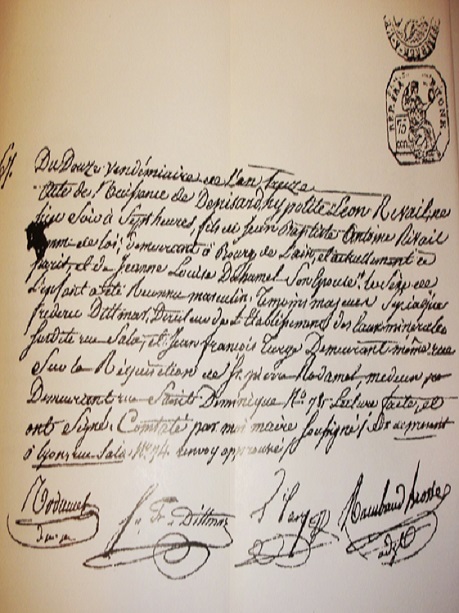 REP. FRA
75
Du Douze vendémiaire de l'an treize
Acte de Naissance de Denisard hypolite Leon Rivail né
hier soir à Sept heures, fils de jean Baptiste Antoine Rivail
homme de loi, demeurant à Bourg de l'ain, et actuellement à
paris, et de Jeanne Louise Duhamel Son épouse. le Sexe de
L'enfant a été Reconnu masculin. Temoins majeurs Syriaque
fréderic Dittmar, Directeur de L'établissement des Eaux minérales
Susdite rue Sala, et Jean françois Targe Demeurant même rue
Sur la Réquisition de Sr. pierre Radamel, médecin
Demeurant rue Saint Dominique No. 78. Lecture faite, et
ont Signé. Constaté par moi maire Soussigné. Sr. demeurant
à Lyon rue Sala No. 74. renvoy approuvé
Radamel
fr. Dittmar
Targe
Rambaud
adjt